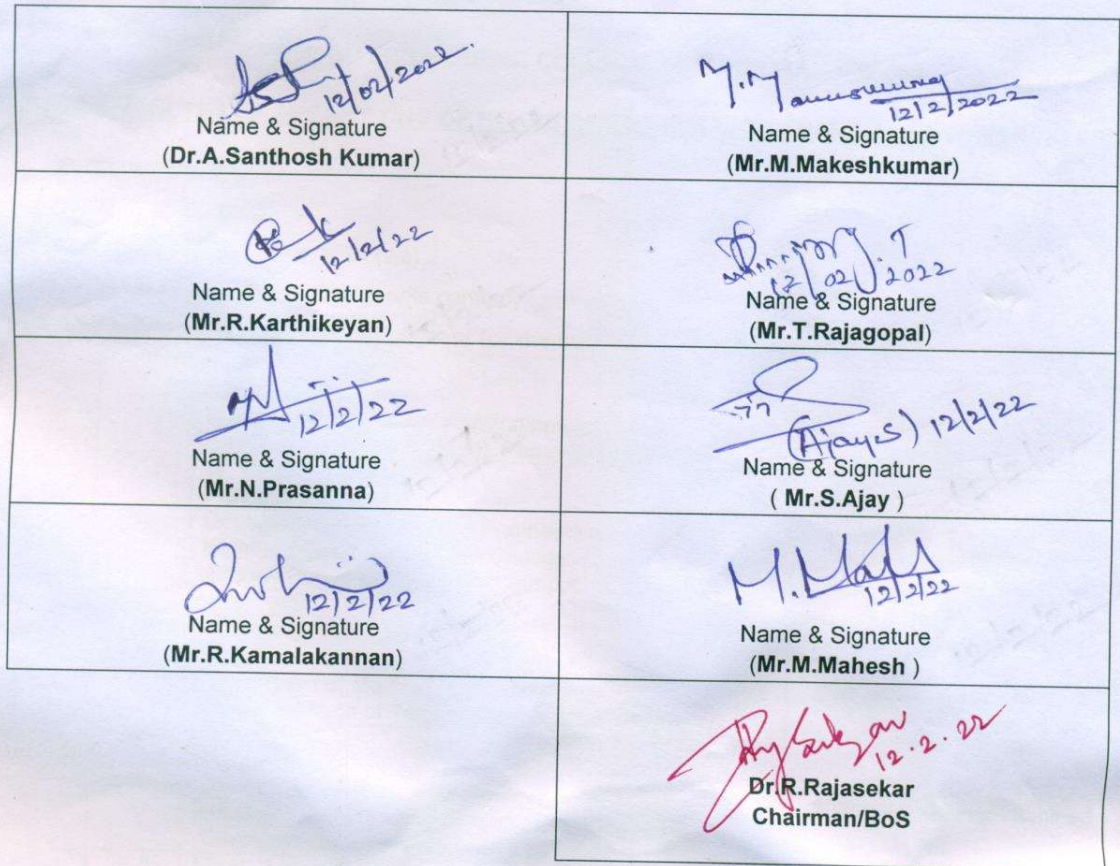 12/02/2022.
Name & Signature
(Dr.A.Santhosh Kumar)
M.M
12/2/2022
Name & Signature
(Mr.M.Makeshkumar)
12/2/22
Name & Signature
(Mr.R.Karthikeyan)
.T
12/02/2022
Name & Signature
(Mr.T.Rajagopal)
12/2/22
Name & Signature
(Mr.N.Prasanna)
(Ajay.S) 12/2/22
Name & Signature
( Mr.S.Ajay )
12/2/22
Name & Signature
(Mr.R.Kamalakannan)
M.
12/2/22
Name & Signature
(Mr.M.Mahesh )
12.2.22
Dr.R.Rajasekar
Chairman/BoS